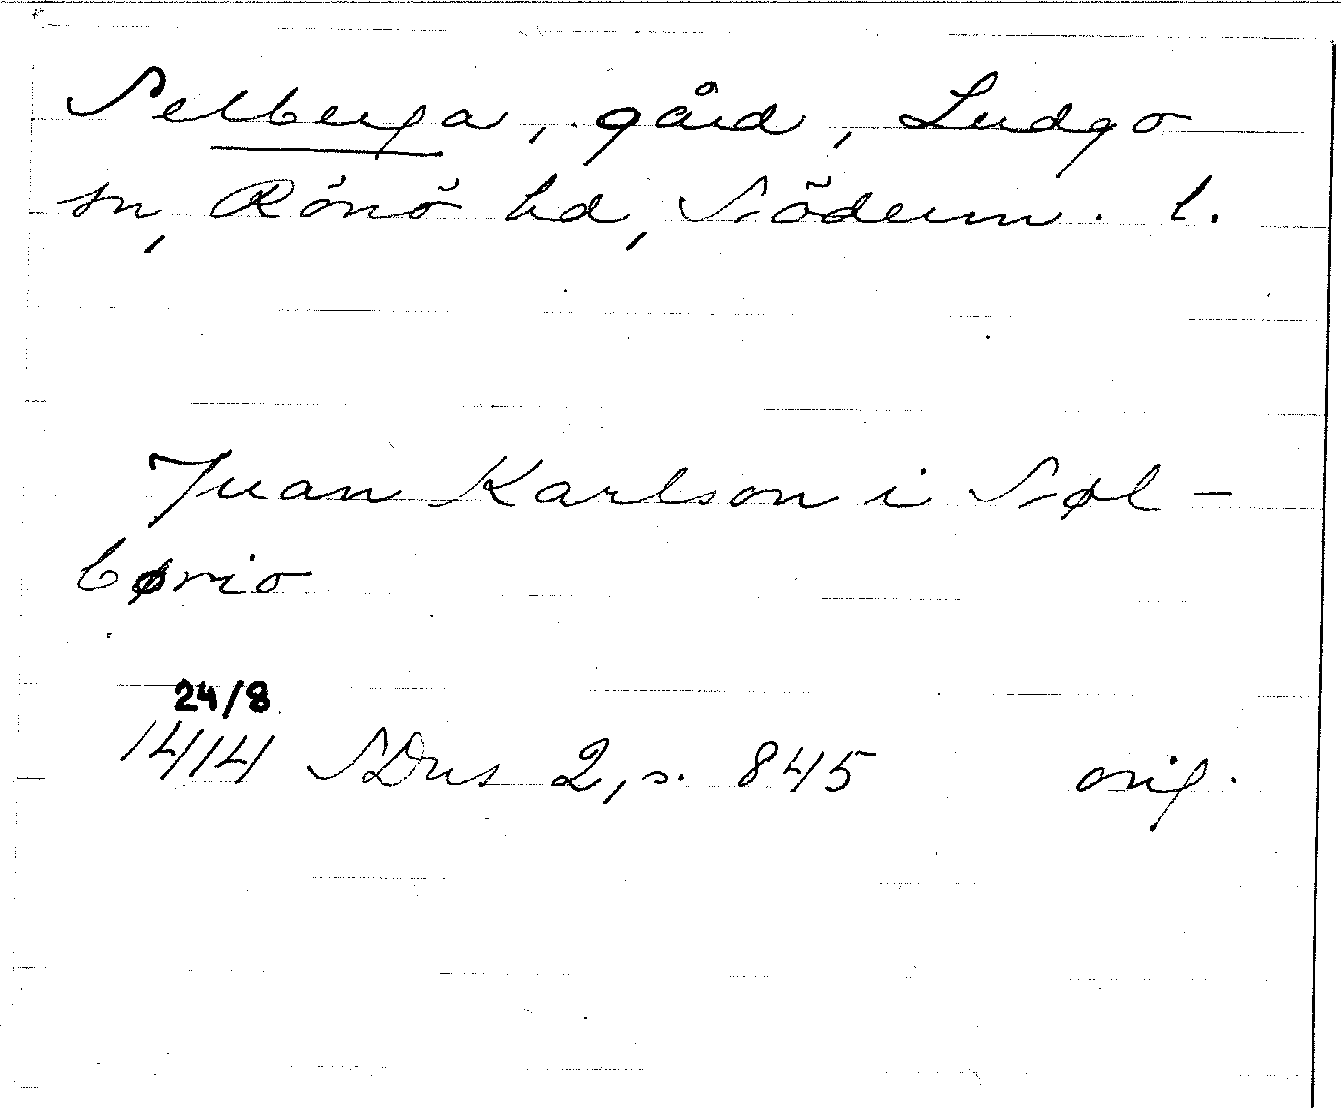 Selberga, gård, Ludgo
sn, Rönö hd, Söderm. l.
Juan Karlson i Søl-
børio
24/8
1414 SDns 2, s. 845 orig.